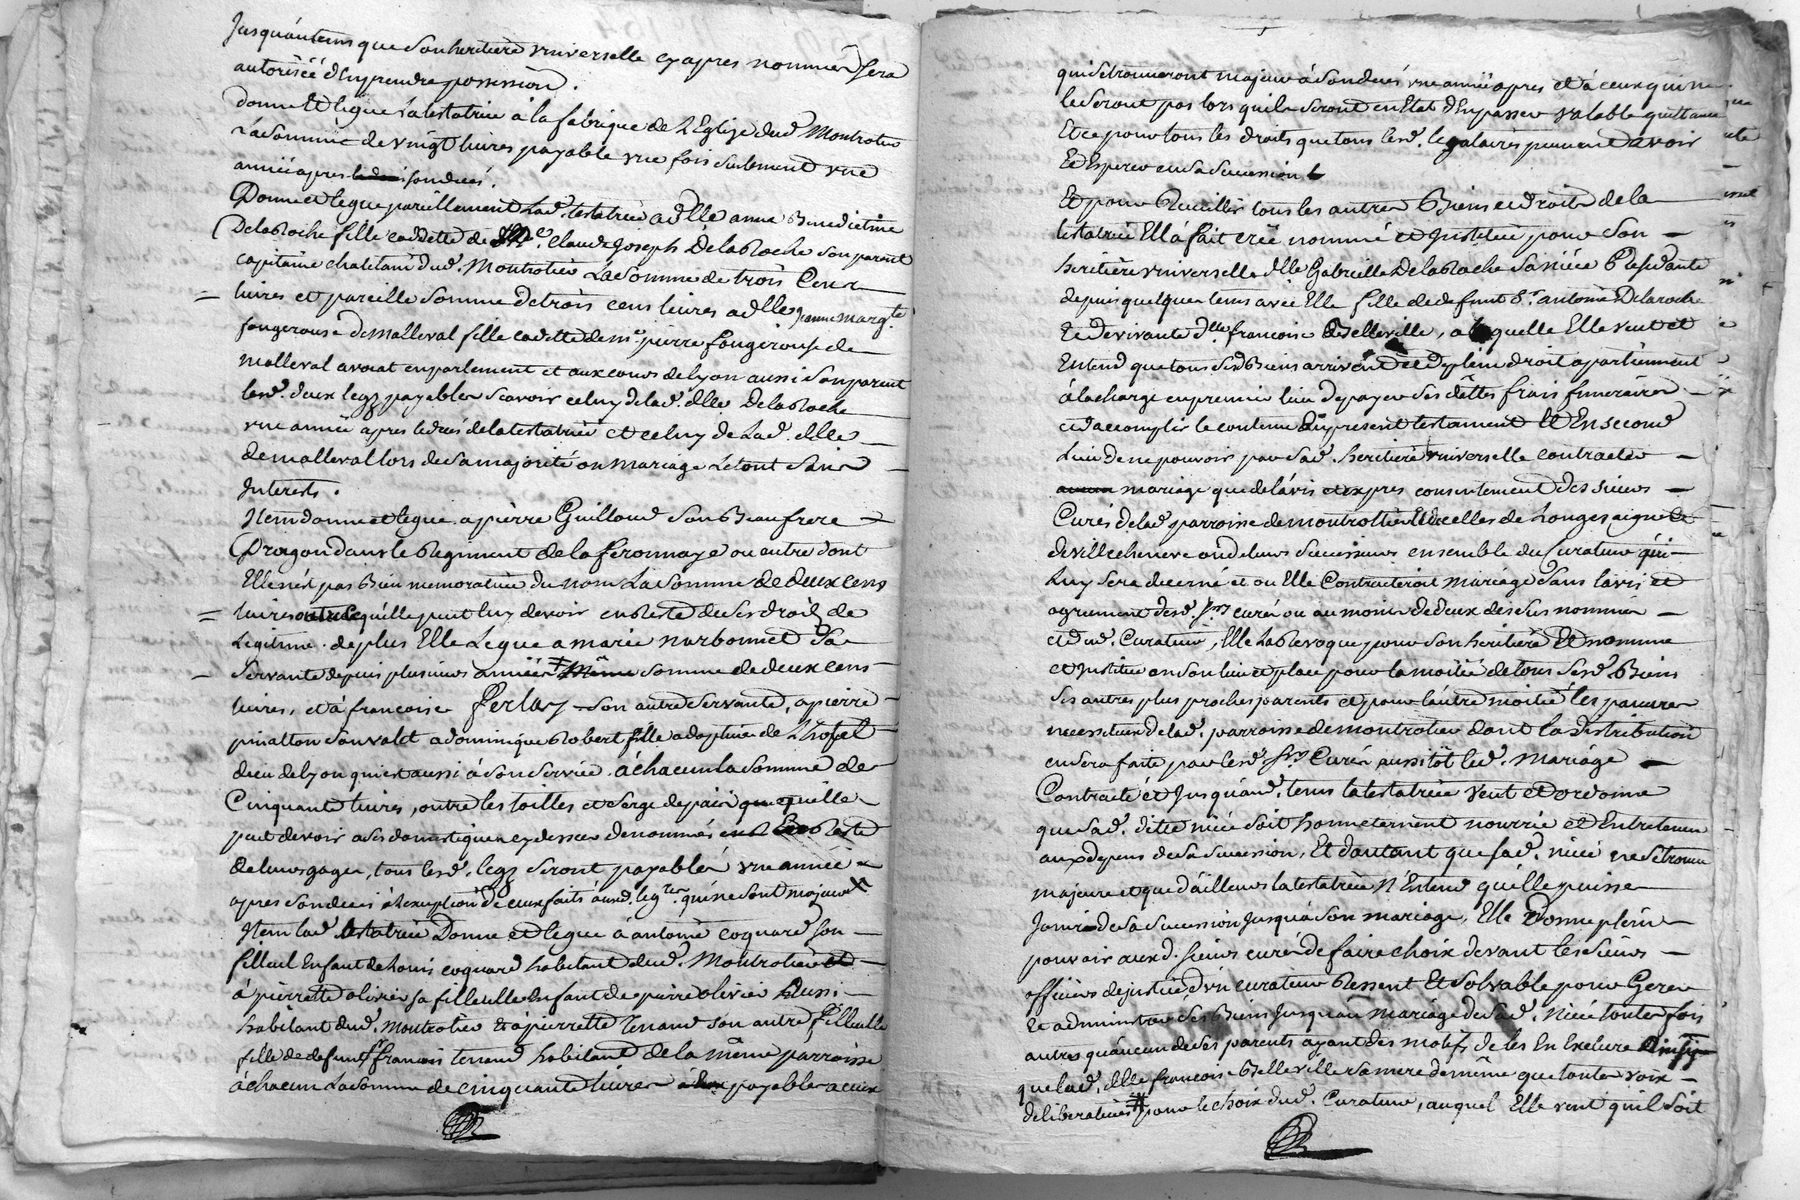 Jusquautems que son heritiere universelle cy apres nommeé sera
autoriseé d'En prendre possession.
donne Et legue la testatrice à la fabrique de L'Eglise dud. Montrotier
la somme de vingt livres payable une fois seulement une
anneé apres son decés.
Donne et legue pareillement lad. testatrice a dlle anne Benedictine
Delaroche fille cadette de Claude joseph Delaroche son parent
capitaine chatelain dud. Montrotier La somme de trois Cens
livres et pareille somme de trois cens livres a dlle jeanne Margte
fougerouse de malleval fille cadette de me. pierre fougerouse de
malleval avocat en parlement et aux cours de lyon aussi son parent
lesd. deux legs payables scavoir celuy de lad. dlle Delaroche
une anneé apres le deces de la testatrice et celuy de Lad. dlle
de malleval lors de sa majorité ou mariage le tout sans
Interests.
Item donne et legue a pierre Guilloud son Beaufrere
Dragon dans le Regiment de la feronnaye ou autre dont
Elle n'est pas Bien memorative du nom La somme de deux cens
livres outre ce qu'elle peut luy devoir en reste de ses droits de
Legitime. de plus Elle Legue a marie narbonnet sa
servante depuis plusieurs anneés même somme de deux cens
livres, et à francoise Ferlay son autre servante, a pierre
pinatton son valet a dominique Robert fille adoptive de L'hotel
dieu de lyon qui est aussi à son service. à chacun la somme de
Cinquante livres, outre les toilles et serge de pais que quelle
peut devoir a ses domestiques cy dessus denommés Reste
de leurs gages, tous lesd. legs seront payables une anneé
apres son deces à l'exception de ceux faits auxd. legres. qui ne sont majeurs
Item lad. testatrice Donne et legue à antoine coquard son
filleul Enfant de Louis coquard habitant dud. Montrotier et
à pierrette olivier sa filleulle Enfant de pierre olivier aussi
habitant dud. montrotier et à pierrette Tenand son autre filleulle
fille de defunt francois tenand habitant de la même parroisse
à chacun La somme de cinquante livres payables a ceux
qui se trouveront majeurs à son decés une anneé apres et à ceux qui ne
le seront pas lors quils seront en Etat d'En passer valable quittance
Et ce pour tous les droits que tous lesd. legataires peuvent avoir
Et Esperer en sa succession
Et pour Recueillir tous les autres Biens et droits de la
testatrice Ell'a fait creé nommé et Institué pour son
heritiere universelle dlle Gabrielle Delaroche sa niéce Residante
depuis quelques tems avec Elle fille de defunt Sr. antoine Delaroche
et de vivante dlle. francoise Belleville, a laquelle Elle veut et
Entend que tous sesd Biens arrivent et de plein droit apartiennent
à la charge en premier lieu de payer ses dettes frais funeraires
et d'accomplir le contenu du present testament Et En second
Lieu de ne pouvoir par sad. heritiere universelle contracter
mariage que de l'avis et expres consentement des sieurs
Curés de lad. parroisse de montrottier Et de celles de Longessaigne
de villecheneve ou de leurs successeurs ensemble du Curateur qui
Luy sera decerné et ou Elle Contracteroit mariage sans l'avis et
agrement desd. srs curés ou au moins de deux des sus nommés
et dud. Curateur, Elle la Revoque pour son heritiere Et nomme
et Institue en son lieu et place pour la moitié de tous sesd. Biens
ses autres plus proches parents et pour l'autre moitié les pauvres
necessiteux de lad. parroisse de montrotier dont la distribution
en sera faite par lesd. srs Curés aussitôt led. Mariage
Contracté et Jusqu'aud. tems la testatrice veut et ordonne
que sad. ditte niéce soit honnetement nourrie et Entretenue
aux depens de sa succession, Et d'autant que sad. niéce ne se trouve
majeure et que d'ailleurs la testatrice N'Entend qu'elle puisse
Jouir de sa succession Jusqu'à son mariage, Elle Donne plein
pouvoir auxd. sieurs curés de faire choix devant les sieurs
officiers de justice, d'un curateur Resseant Et solvable pour Gerer
Et administrer ses Biens Jusqu'au Mariage de sad. Niéce toutes fois
autres qu'aucun de ses parents ayant des motifs de les En Exclure ainsy
que lad. dlle francoise Belleville sa mere de même que toutes voix
deliberatives pour le choix dud. Curateur, auquel Elle veut qu'il soit